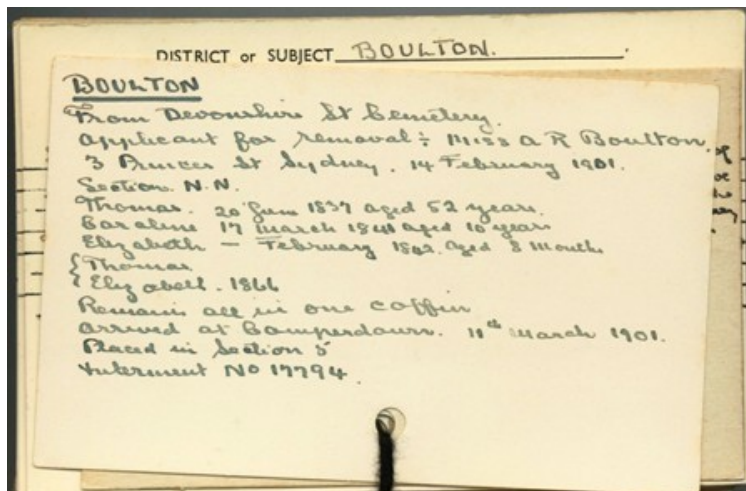 DISTRICT or SUBJECT BOULTON.
BOULTON
From Devonshire St Cemetery.
Applicant for removal :- Miss A R Boulton.
3 Princes St Sydney. 14 February 1901.
Section N.N.
Thomas. 20 June 1837 aged 52 years.
Caroline 17 March 1841 aged 10 years
Elizabeth – February 1842. aged 8 Months
{ Thomas
{ Elizabeth. 1866
Remains all in one coffin
arrived at Camperdown. 11th March 1901.
Placed in Section 5
Interment No 17794.
of